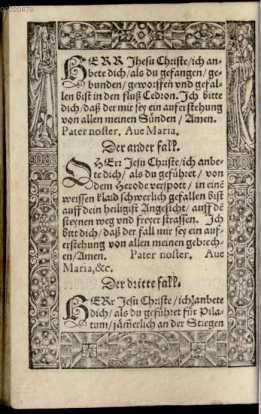 HERR Jhesu Christe/ich an-
bete dich/als du gefangen/ge-
bunden/geworffen vnd gefal-
len bist in den fluß Cedron. Ich bitte
dich/daß der mir sey ein aufferstehung
von allen meinen Sünden/Amen.
Pater noster, Aue Maria.
Der ander fall.
O HErr Jesu Christe/ich anbe-
te dich/als du geführet/von
dem Herode verspott/in einē
weissen klaid schwerlich gefallen bist
auff dein heiligist Angesicht/auff dē
steinen weg vnd freyer strassen. Ich
bitt dich/daß der fall mir sey ein auf-
erstehung von allen meinen gebrech-
en/Amen. Pater noster, Aue
Maria,&c.
Der dritte fall.
HERr Jesu Christe/ich anbete
dich/als du geführet für Pila-
tum/jām̄erlich an der Stiegen